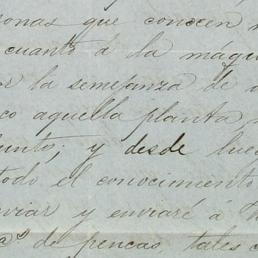 onas que conocen
cuanto á la máqu
or la semejanza de
co aquella planta
junto; y desde lue
todo el conocimiento
viar y enviaré á
de pencas, tales